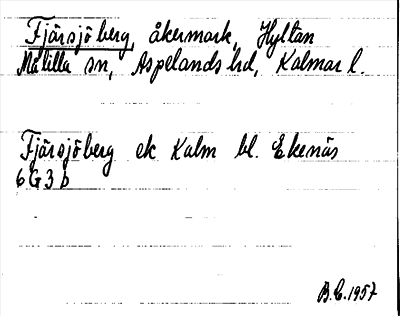 Fjärsjöberg, åkermark, Hyltan
Målilla sn, Aspelands hd, Kalmar l.
Fjärsjöberg ek Kalm bl. Ekenäs
6 G 3 b
B.E. 1957